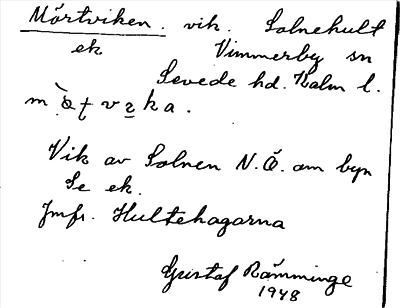 Mörtviken. vik. Solnehult
ek Vimmerby sn
Sevede hd. Kalm l.
Vik av Solnen N.Ö. om byn
Se ek.
Jmfr. Hultehagarna
Gustaf Rämminge
1948